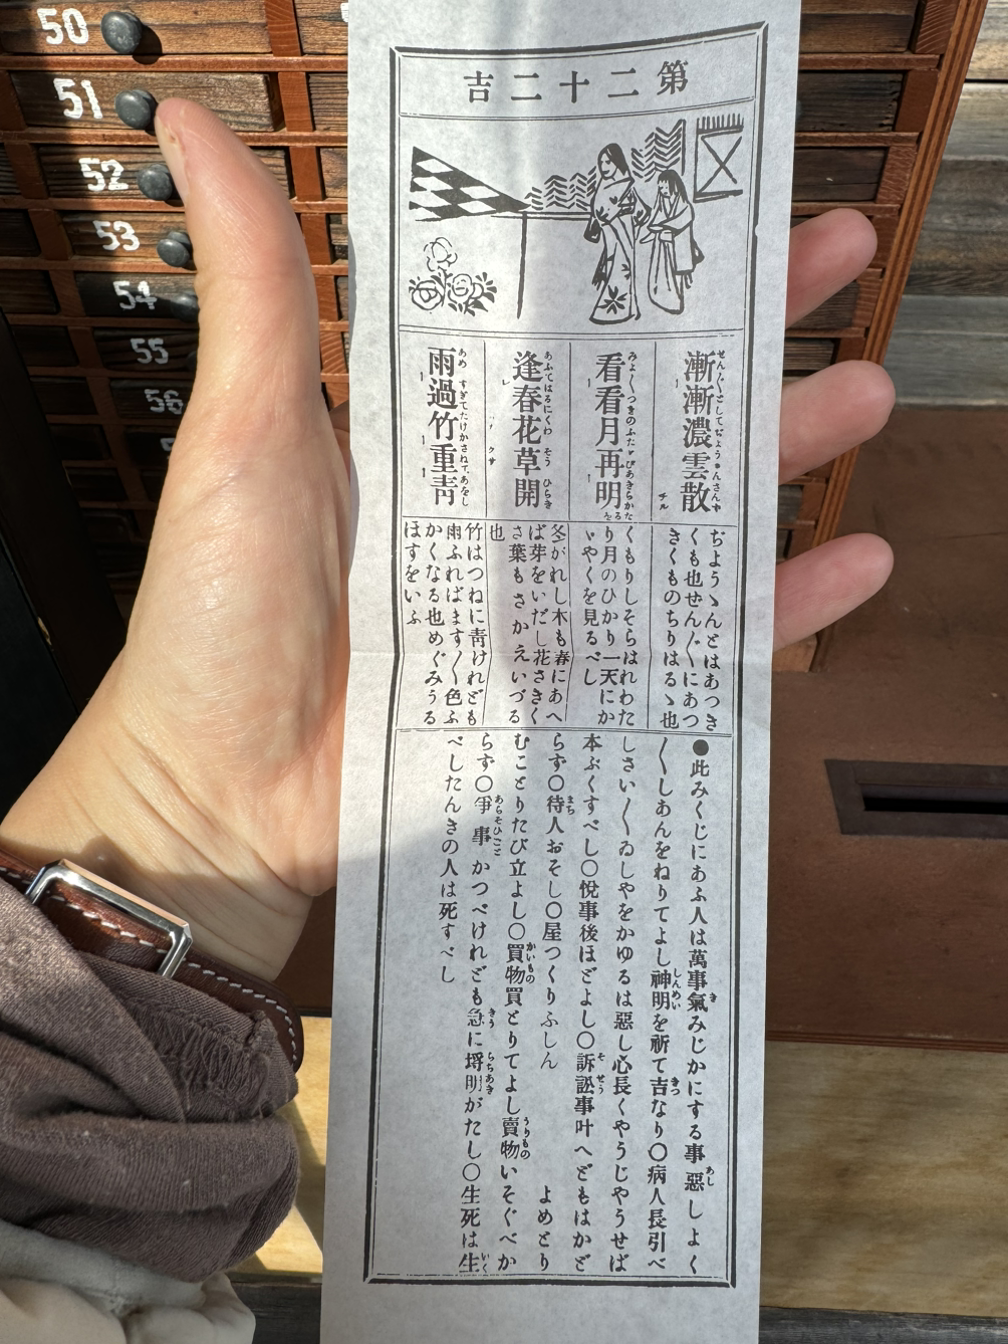 50
51
52
53
54
55
56
第二十二吉
漸漸濃雲散
看看月再明
逢春花草開
雨過竹重靑
ぢようゝんとはあつき
くも也せん〴〵にあつ
きくものちりはるゝ也
くもりしそらはれわた
り月のひかり一天にか
ゝやくを見るべし
冬がれし木も春にあへ
ば芽をいだし花さきく
さ葉もさかえいづる
也
竹はつねに靑けれども
雨ふればます〳〵色ふ
かくなる也めぐみうる
ほすをいふ
●此みくじにあふ人は萬事氣みじかにする事惡しよく
〳〵しあんをねりてよし神明を祈て吉なり〇病人長引べ
しさい〳〵ゐしやをかゆるは惡し心長くやうじやうせば
本ぶくすべし〇悅事後ほどよし〇訴訟事叶へどもはかど
らず〇待人おそし〇屋つくりふしん よめとり
むことりたび立よし〇買物買とりてよし賣物いそぐべか
らず〇爭事かつべけれども急に埓明がたし〇生死は生
べしたんきの人は死すべし